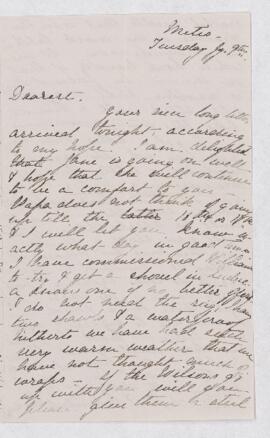 Metis.
Tuesday Jy. 9th.
Dearest.
Your nice long letter
arrived tonight, according
to my hope. I am delighted
that Jane is going on well
& hope that she will continue
to be a comfort to you.
Papa does not think of going
up till the latter 16th or 17th
& I will let you know ex
actly what day, in good time.
I have commissioned William
to try & get a shovel in
a one if no better
I do not need the rug I have
two shawls & a waterproof
hitherto we have had such
very warm weather that we
have not thought much of
wraps. If the Wilsons go
up with you will you
please give them a